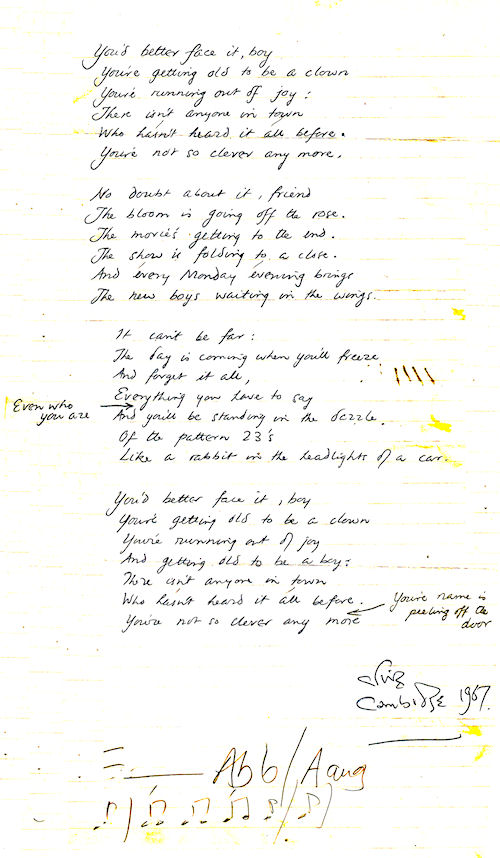 You'd better face it, boy
You're getting old to be a clown
You're running out of joy:
There isn't anyone in town
Who hasn't heard it all before.
You're not so clever any more.
No doubt about it, friend
The bloom is going off the rose.
The movie's getting to the end.
The show is folding to a close.
And every Monday evening brings
The new boys waiting in the wings.
It can't be far:
The day is coming when you'll freeze
And forget it all,
Everything you have to say
Even who you are
And you'll be standing in the dazzle
Of the pattern 23's
Like a rabbit in the headlights of a car.
You'd better face it, boy
You're getting old to be a clown
You're running out of joy
And getting old to be a boy:
There isn't anyone in town
Who hasn't heard it all before.
You're not so clever any more
You're name is peeling off the door
Cambidge 1967.
Abb/Aaug